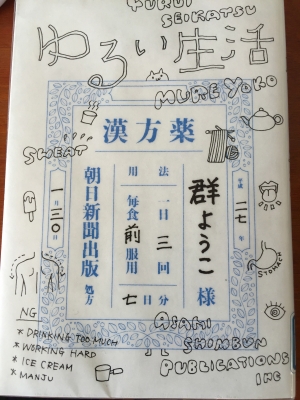 YURUI
SEIKATSU
ゆるい生活
MURE YOKO
漢方薬
SWEAT
平成 二七 年
一月三〇日
群ようこ 様
用法 一日 三 回
毎食 前 服用
七 日分
朝日新聞出版 処方
STOMACH
NG
* DRINKING TOO MUCH
* WORKING HARD
* ICE CREAM
* MANJU
ASAHI
SHIMBUN
PUBLICATIONS
INC